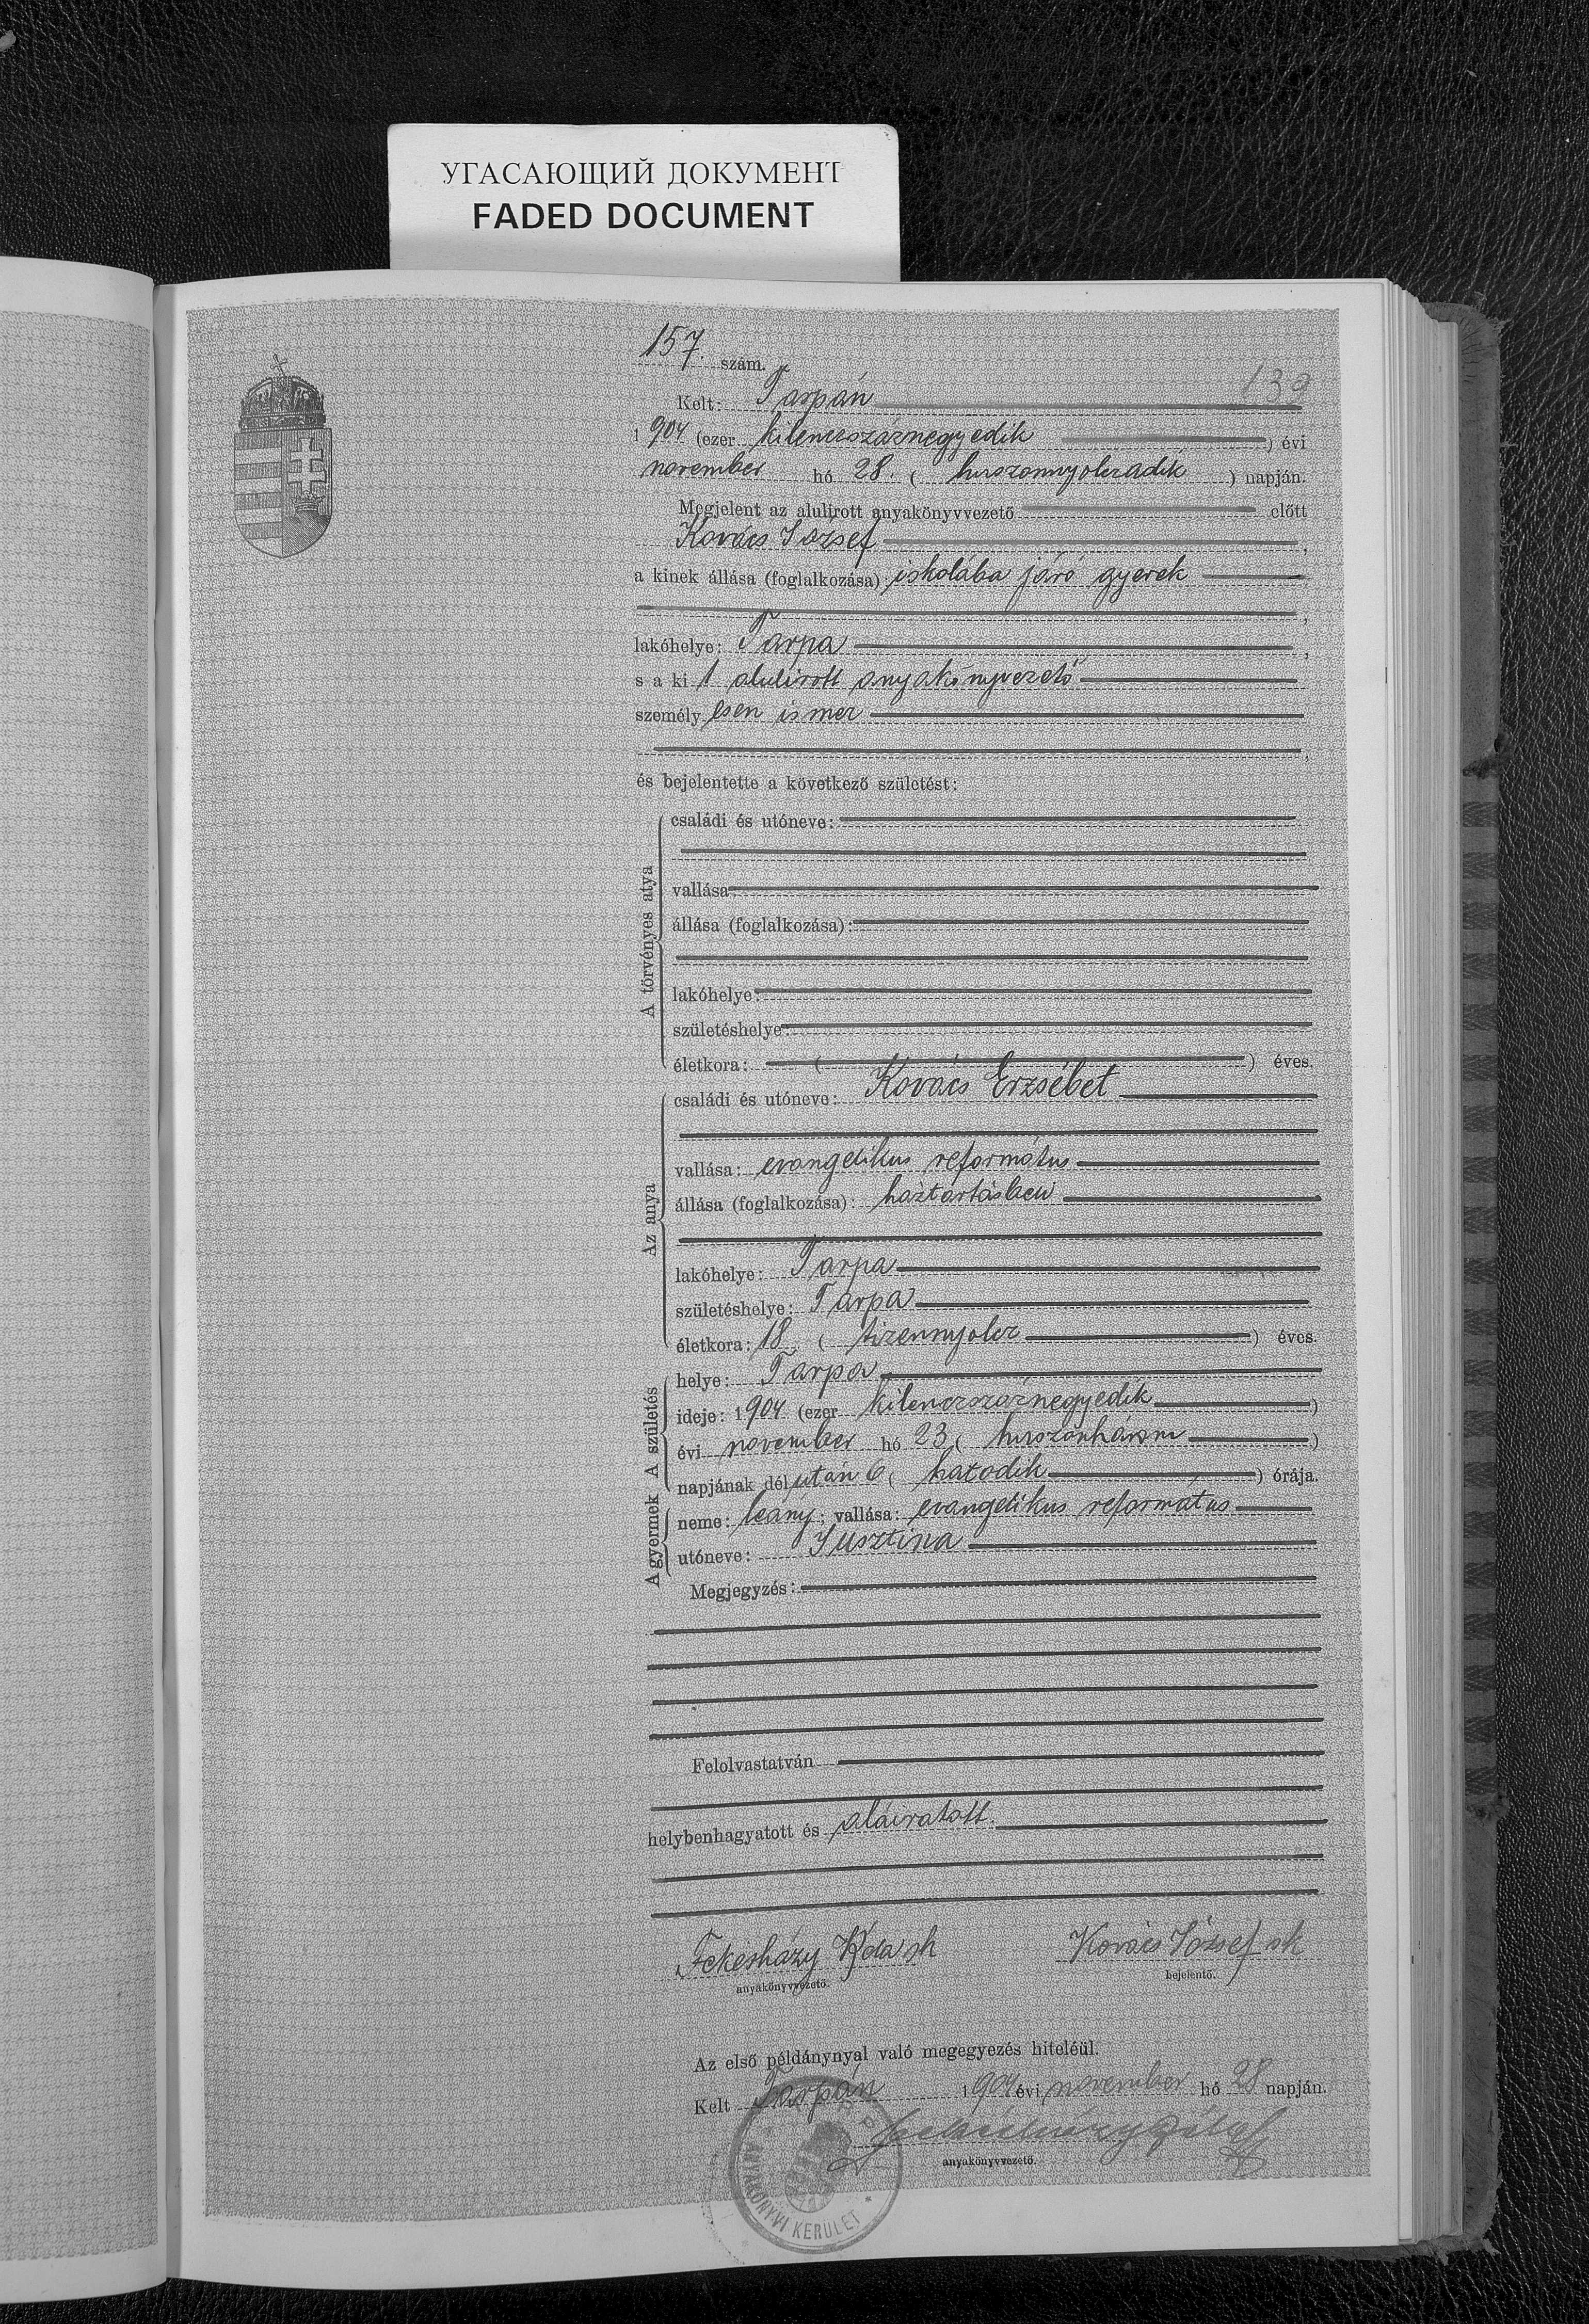 УГАСАЮЩИЙ ДОКУМЕНТ
FADED DOCUMENT
157. szám.
139
Kelt: Tarpán
1904 (ezer kilenczszáznegyedik) évi
november hó 28. (huszonnyolczadik) napján.
Megjelent az alulirott anyakönyvvezető előtt
Kovács József,
a kinek állása (foglalkozása): iskolába járó gyerek
,
lakóhelye: Tarpa,
s a ki t alulirott anyakönyvezető
személy esen ismer
,
és bejelentette a következő születést:
A törvényes atya
családi és utóneve:
vallása:
állása (foglalkozása):
lakóhelye:
születéshelye:
életkora: ( ) éves.
Az anya
családi és utóneve: Kovács Erzsébet
vallása: evangelikus református
állása (foglalkozása): háztartásbeli
lakóhelye: Tarpa
születéshelye: Tarpa
életkora: 18 (tizennyolcz) éves.
A születés
helye: Tarpa
ideje: 1904 (ezer kilenczszáznegyedik)
évi november hó 23 (huszonhárom)
napjának dél után 6 (hatodik) órája.
A gyermek
neme: leány; vallása: evangelikus református
utóneve: Jusztina
Megjegyzés:
Felolvastatván
helybenhagyatott és aláiratott.
Kovács József sk
anyakönyvvezető.
bejelentő.
Az első példánynyal való megegyezés hiteléül.
Kelt Tarpán 1904 évi november hó 28 napján.
anyakönyvvezető.
ANYAKÖNYVI KERÜLET